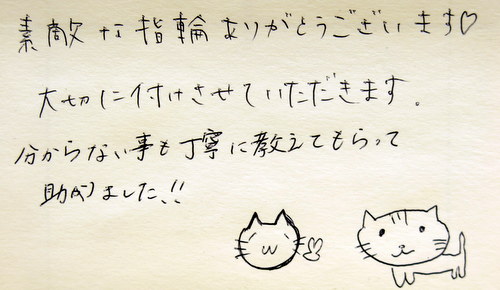 素敵な指輪ありがとうございます♡
大切に付けさせていただきます。
分からない事も丁寧に教えてもらって
助かりました!!